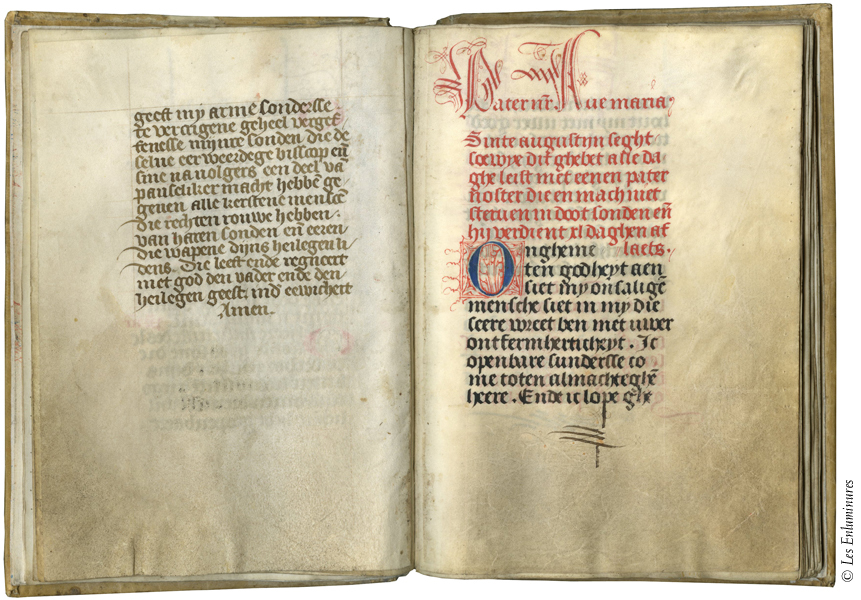 geest my arme sondersse
te vercrigene geheel vergef
fenesse mynre sonden die de
selue eerweerdege bisscop en̄
sine nauolgers een deel van̄
pauseliker macht hebbē ge
geuen alle kerstene menscē
die rechten rouwe hebben.
van haren sonden en̄ eeren
die wapene dijns heilegen li
dens. Die leeft ende regneert
met god den vader ende den
heilegen geest. ind eewichert
Amen.
Pater nr̄ Aue maria.
Sinte augustyn seght
soe wye dit ghebet alle da
ghe leist met eenen pater
noster die en mach niet
steruen in doot sonden en̄
hy verdient xl daghen af
laets.
Ongheme
ten godheyt aen
siet my onsalige
mensche siet in my die
seere wreet ben met uwer
ontfermherticheyt. Ic
openbare sundersse co
me toten almachteghē
heere. Ende ic lope ghe
© Les Enluminures